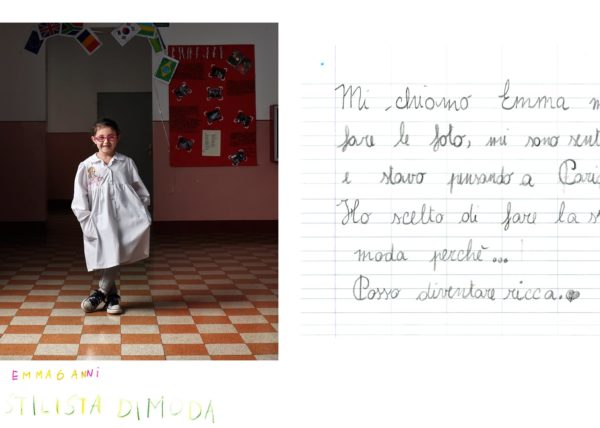 Mi chiamo Emma m
fare le foto, mi sono sent
e stavo pensando a Parig
Ho scelto di fare la s
moda perchè...
Posso diventare ricca.
EMMA 6 ANNI
STILISTA DI MODA